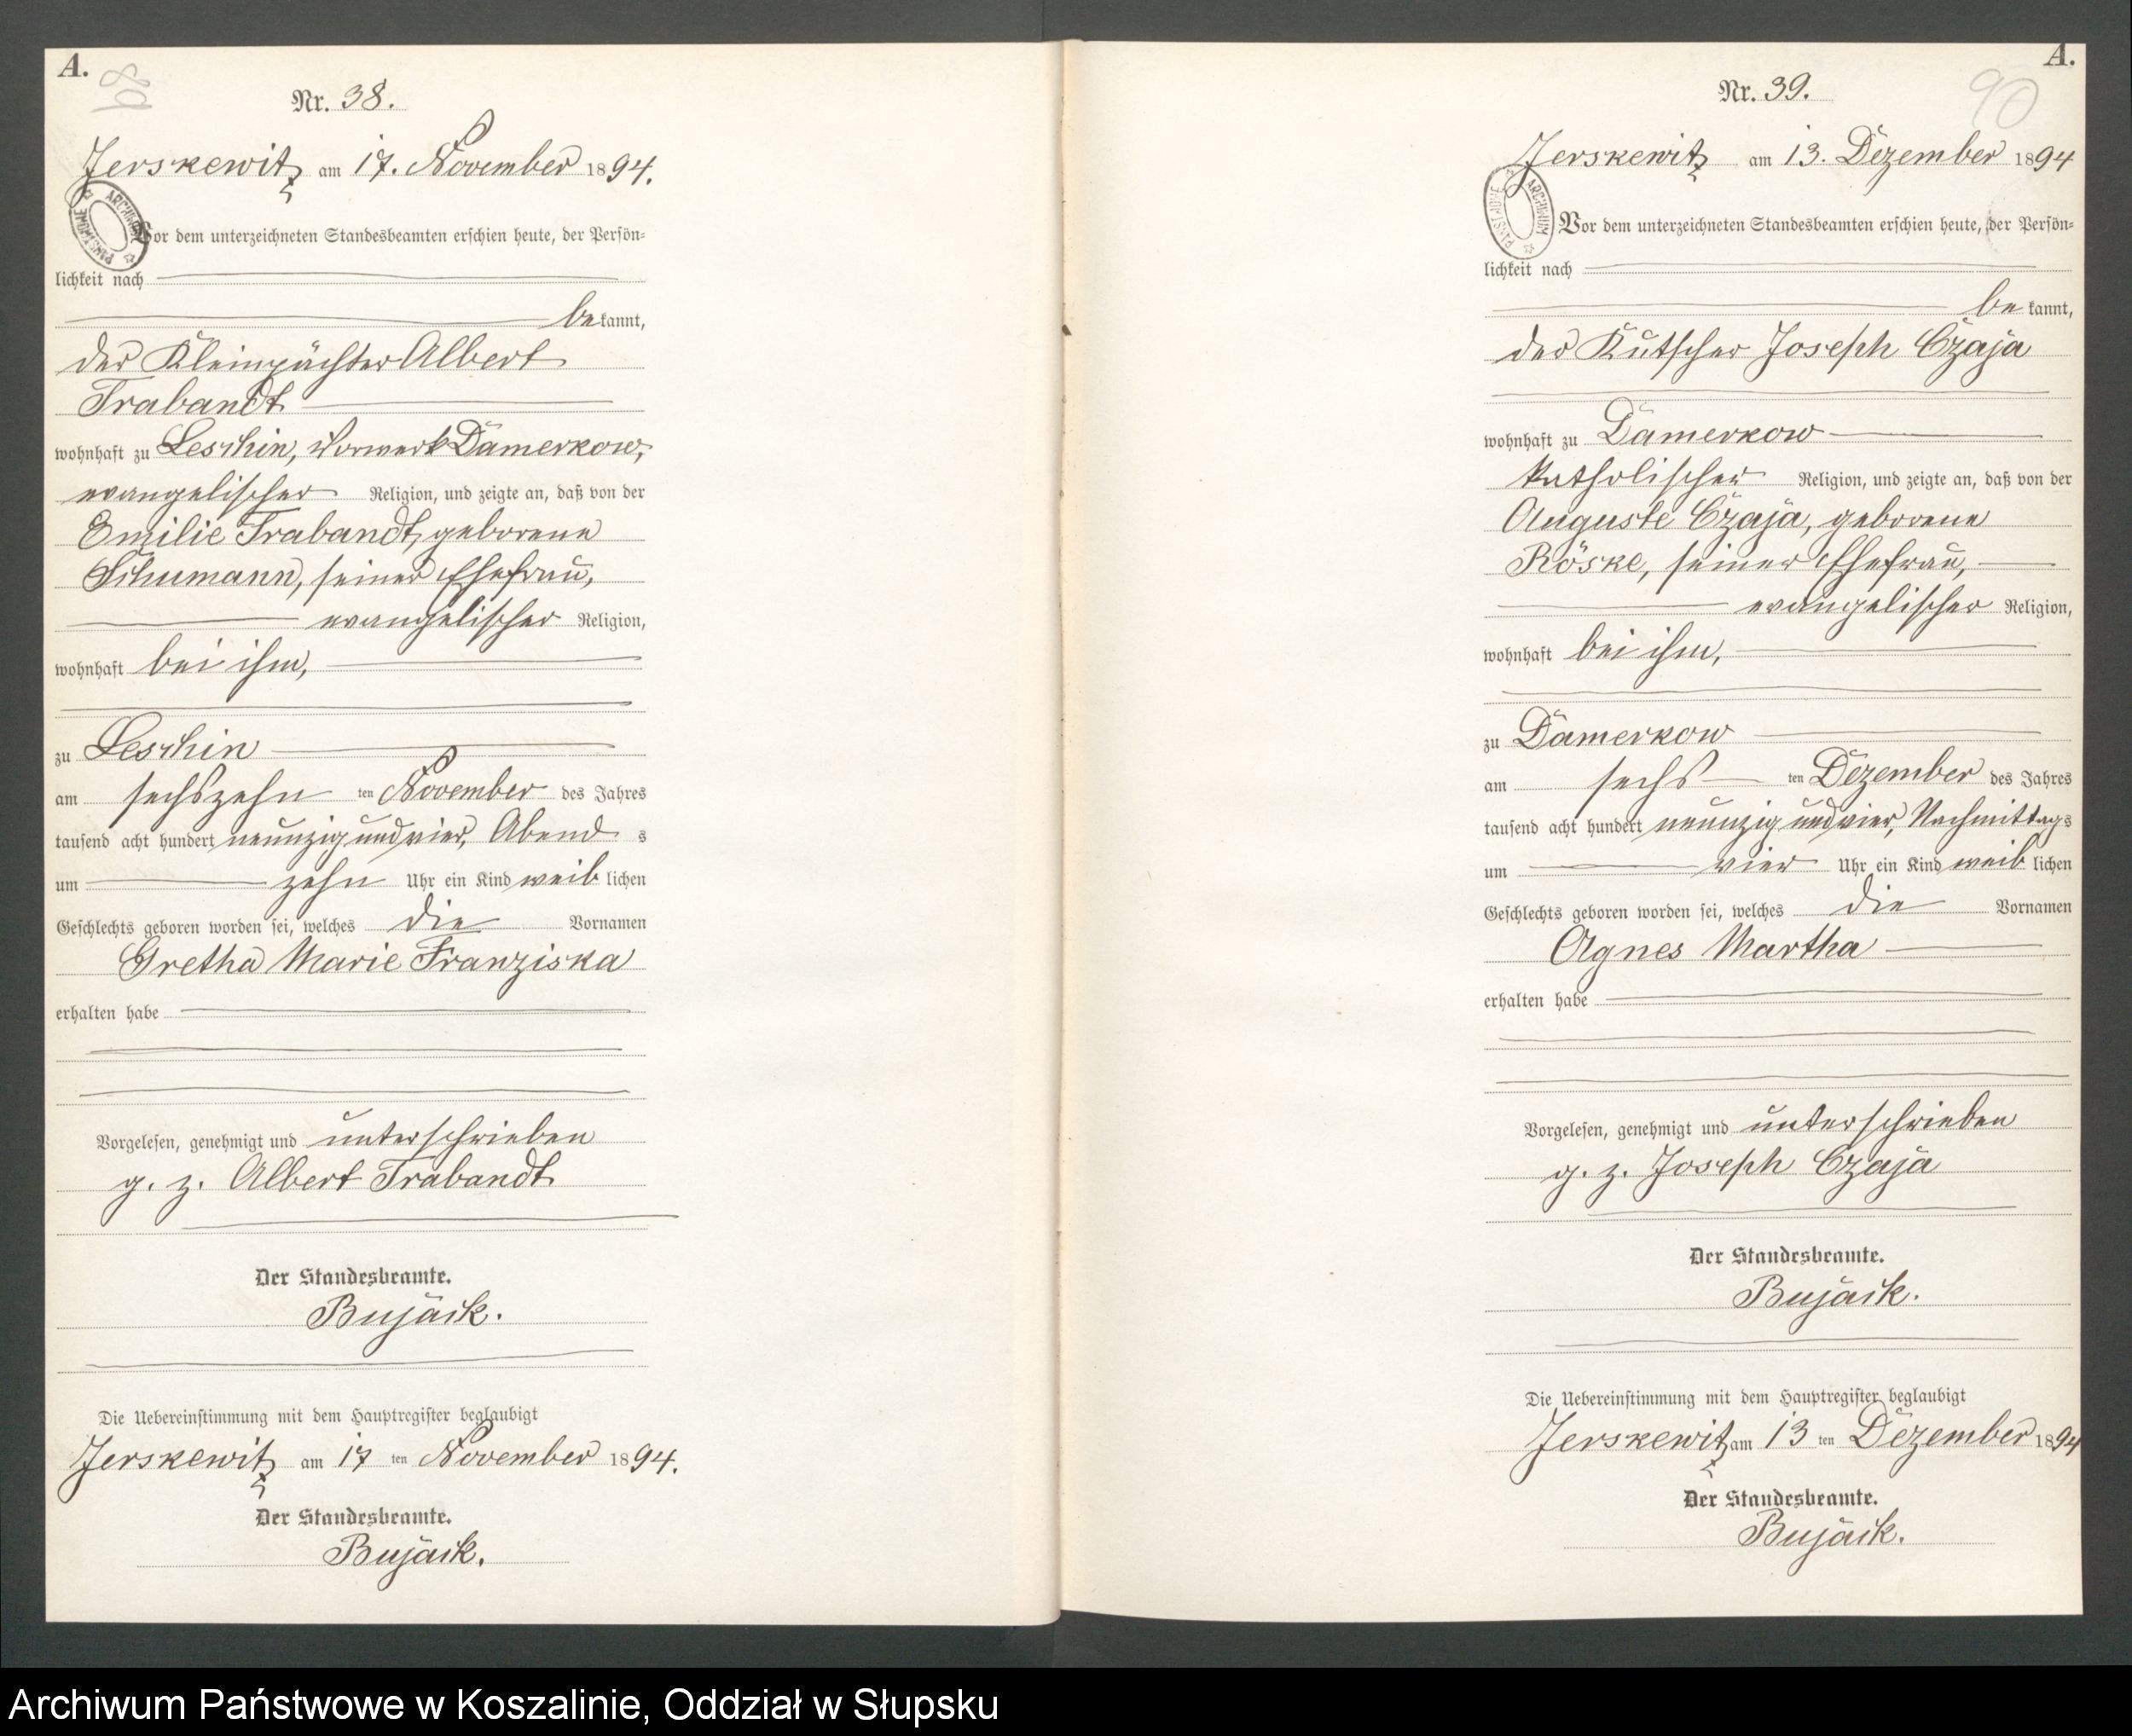 A.
Nr. 38.
Jerskewitz am 17. November 1894.
Vor dem unterzeichneten Standesbeamten erschien heute, der Persön-
lichkeit nach
bekannt,
der Kleinpächter Albert
Trabandt
wohnhaft zu Leschin, Vorwerk Damerkow,
evangelischer Religion, und zeigte an, daß von der
Emilie Trabandt, geborene
Schumann, seiner Ehefrau,
evangelischer Religion,
wohnhaft bei ihm,
zu Leschin
am sechszehn ten November des Jahres
tausend acht hundert neunzig und vier, Abend s
um zehn Uhr ein Kind weiblichen
Geschlechts geboren worden sei, welches die Vornamen
Gretha Marie Franziska
erhalten habe
Vorgelesen, genehmigt und unterschrieben
g. z. Albert Trabandt
Der Standesbeamte.
Bujack.
Die Uebereinstimmung mit dem Hauptregister beglaubigt
Jerskewitz am 17 ten November 1894.
Der Standesbeamte.
Bujack.
A.
90
Nr. 39.
Jerskewitz am 13. Dezember 1894
ARCHIWUM PAŃSTWOWE
Vor dem unterzeichneten Standesbeamten erschien heute, der Persön-
lichkeit nach
bekannt,
der Kutscher Joseph Czaja
wohnhaft zu Damerkow
katholischer Religion, und zeigte an, daß von der
Auguste Czaja, geborene
Röske, seiner Ehefrau,
evangelischer Religion,
wohnhaft bei ihm,
zu Damerkow
am sechs ten Dezember des Jahres
tausend acht hundert neunzig und vier, Nachmittags
um vier Uhr ein Kind weiblichen
Geschlechts geboren worden sei, welches die Vornamen
Agnes Martha
erhalten habe
Vorgelesen, genehmigt und unterschrieben
g. z. Joseph Czaja
Der Standesbeamte.
Bujack.
Die Uebereinstimmung mit dem Hauptregister beglaubigt
Jerskewitz am 13 ten Dezember 1894
Der Standesbeamte.
Bujack.
Archiwum Państwowe w Koszalinie, Oddział w Słupsku